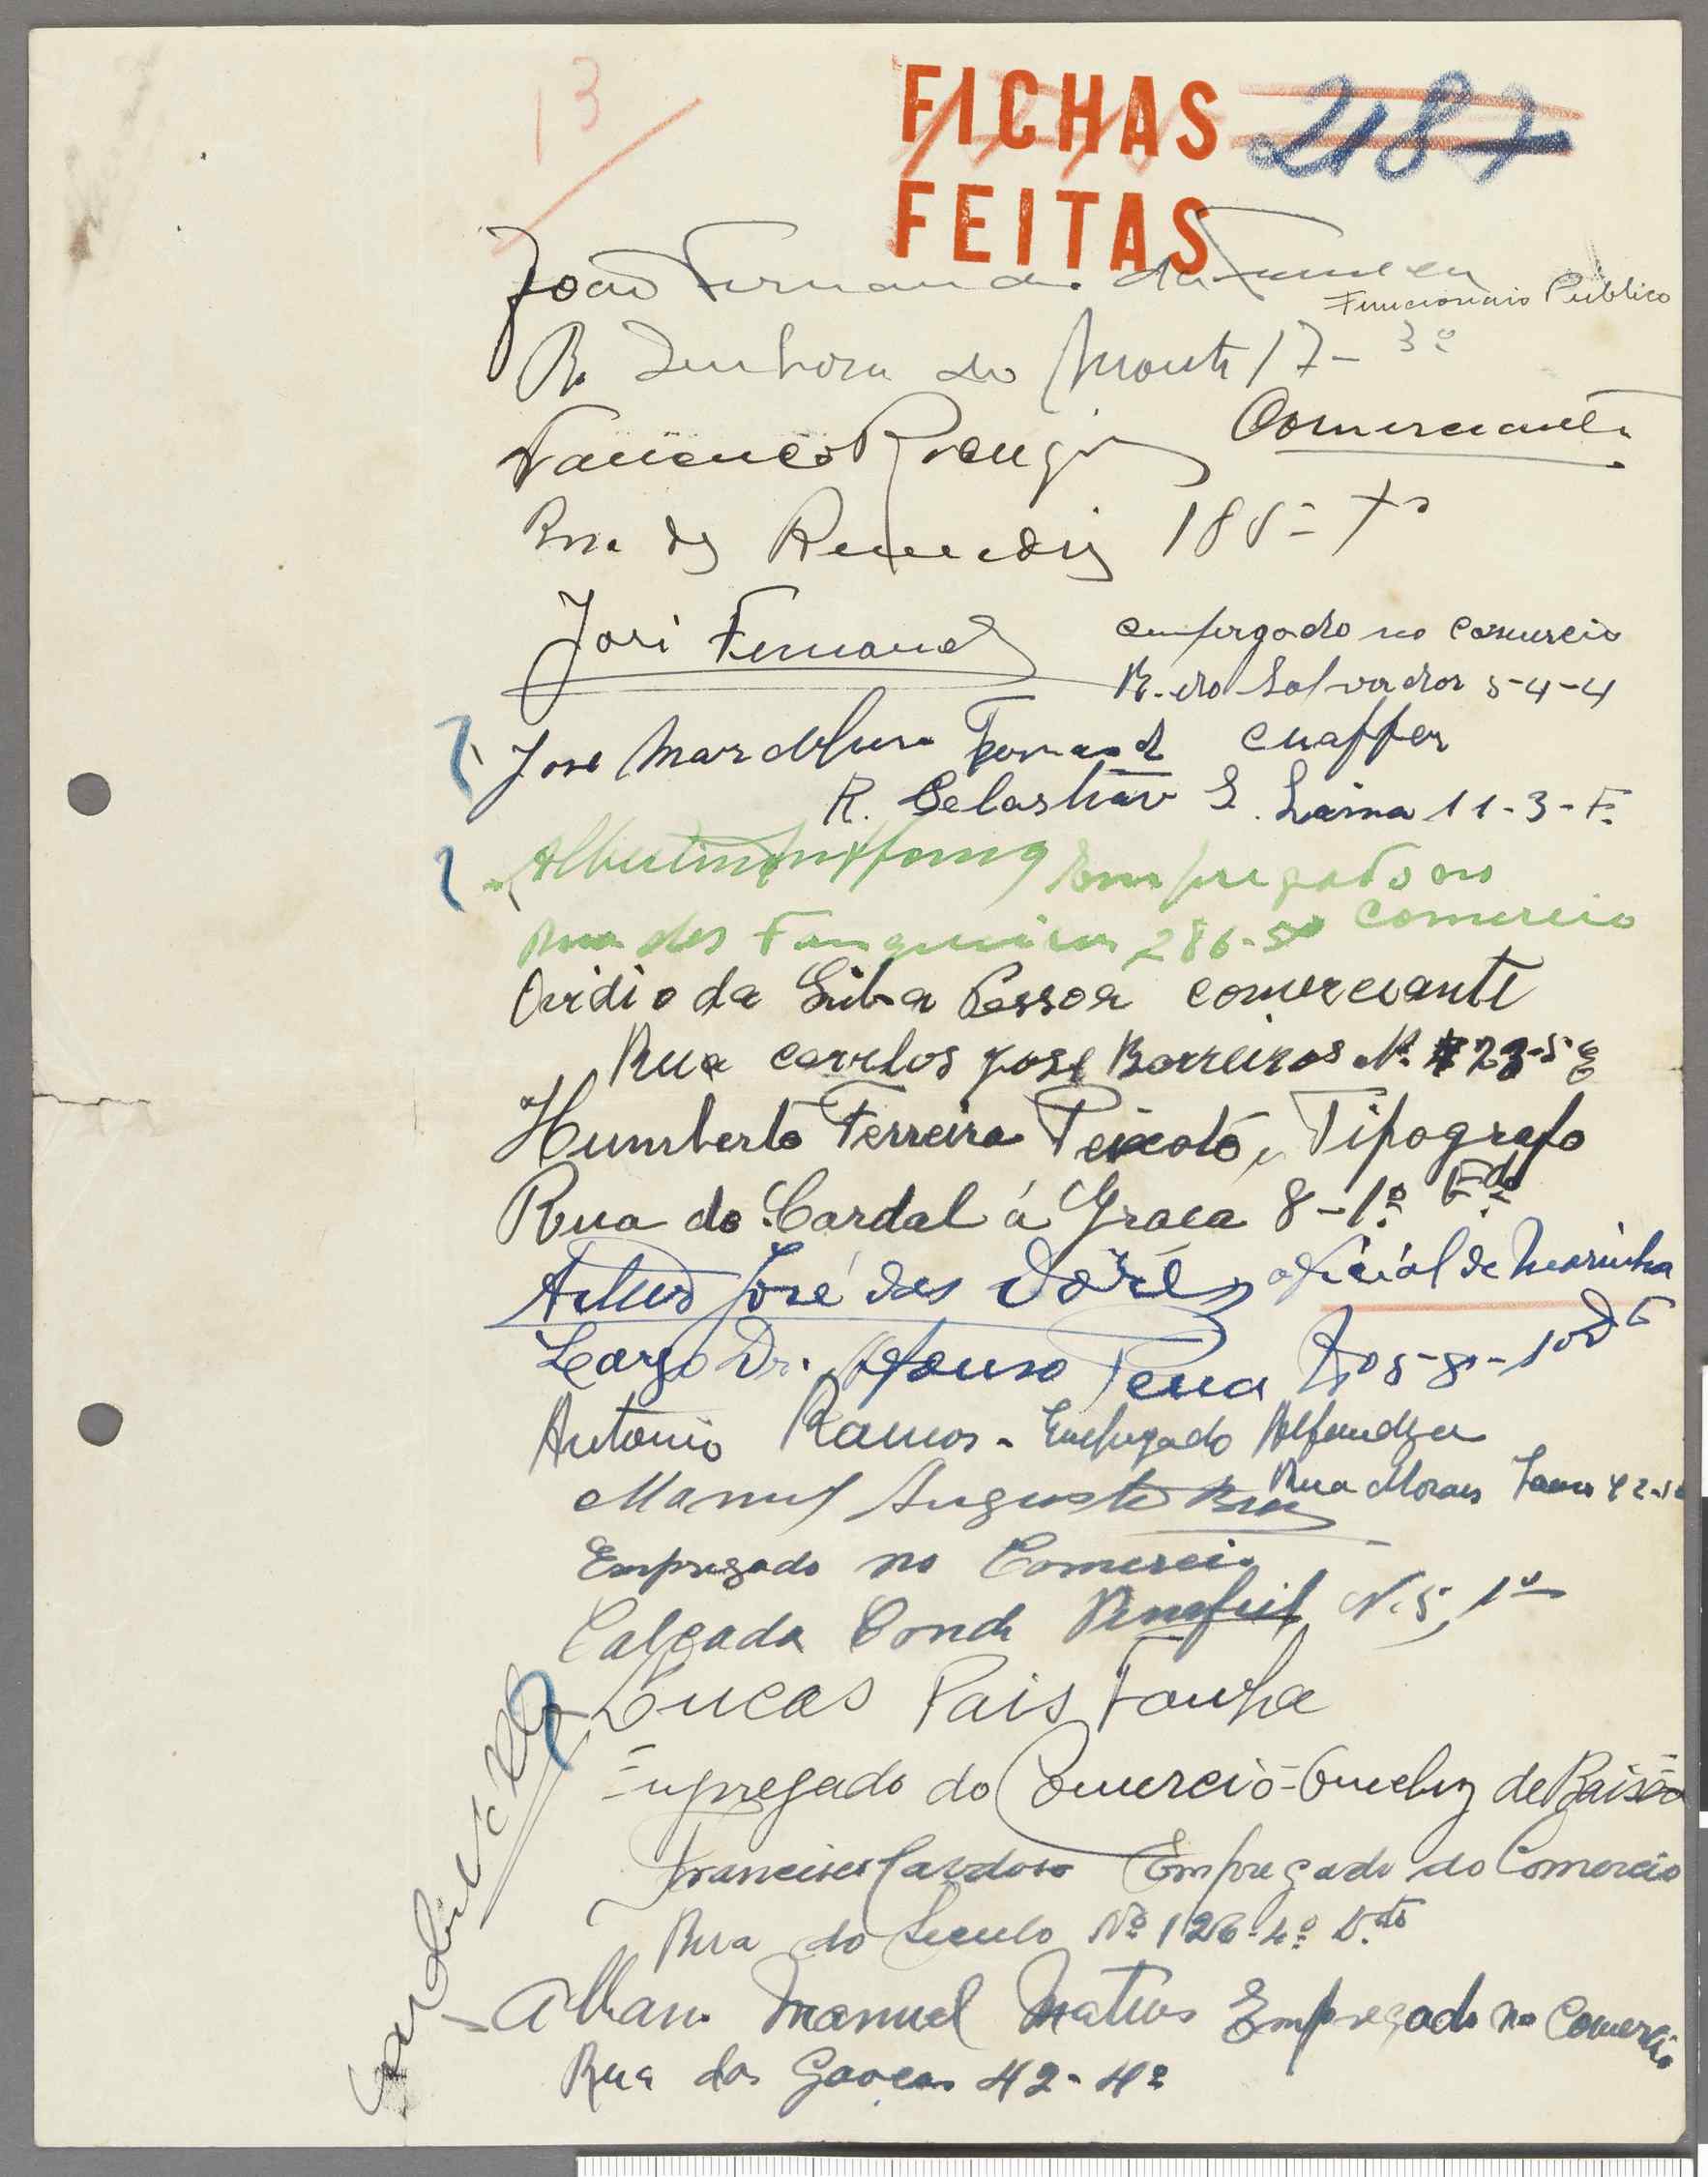 13
FICHAS 2187
FEITAS
João Fernandes da
Funcionario Publico
R. Senhora do Monte 17-3º
Comerciante
Rua dos Remedios
José Fernandes empregado no comercio
R. do Salvador 5-4-4
José chaffer
R. Sebastião S. Lama 11-3-F.
Empregado no
Rua dos Fanqueiros 286-5º Comercio
Ovidio da Silva Pessoa comerciante
Rua carlos jose Barreiros Nº 23-5º E
Humberto Ferreira Peixoto, Tipografo
Rua do Cardal á Graça 8-1º Edo
Artur José das Dôres oficial de Marinha
Largo Dr. Afonso Pena
Antonio Ramos - Empregado Alfandega
Rua Moraes Soares 42-1º
Manuel Augusto
Empregado no Comercio
Calçada Conde Penafiel N. 5, 1º
Lucas Pais Fanha
Empregado do Comercio - de Baixo
Francisco Cardoso Empregado do Comercio
Rua do Seculo Nº 126-4º D.to
Albano Manuel Mateus Empregado no Comercio
Rua das Gaveas 42-4º